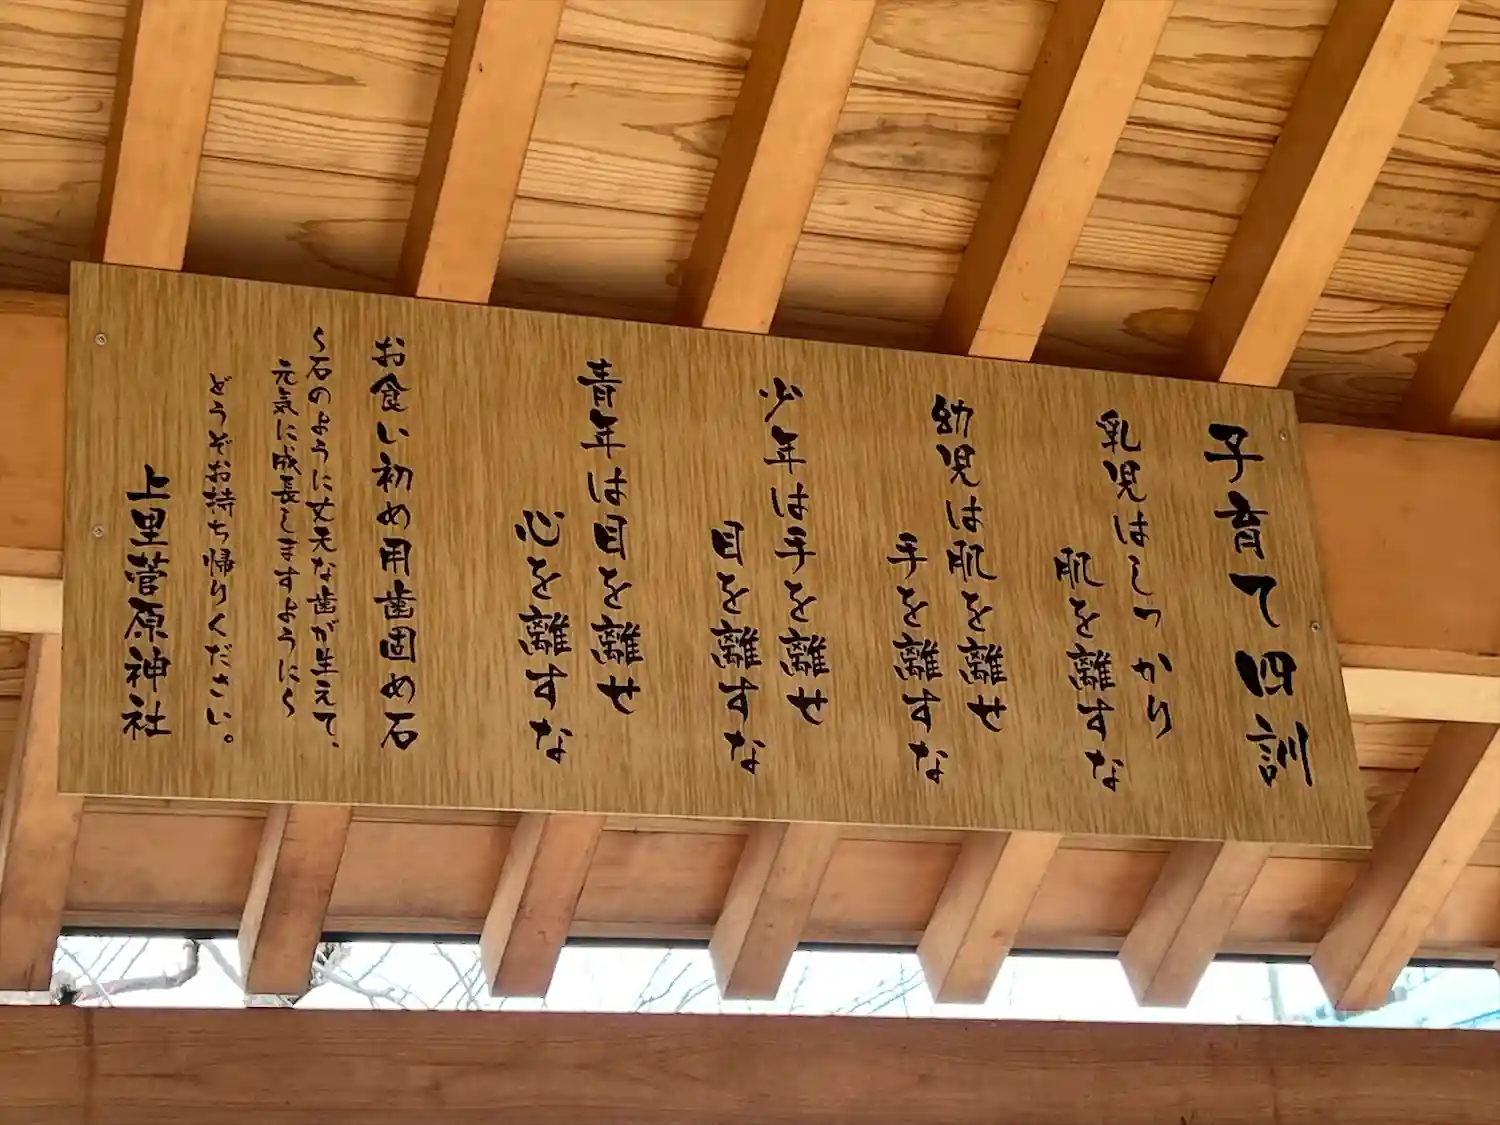 子育て四訓
乳児はしっかり
肌を離すな
幼児は肌を離せ
手を離すな
少年は手を離せ
目を離すな
青年は目を離せ
心を離すな
お食い初め用歯固め石
〜石のように丈夫な歯が生えて、
元気に成長しますように〜
どうぞお持ち帰りください。
上里菅原神社